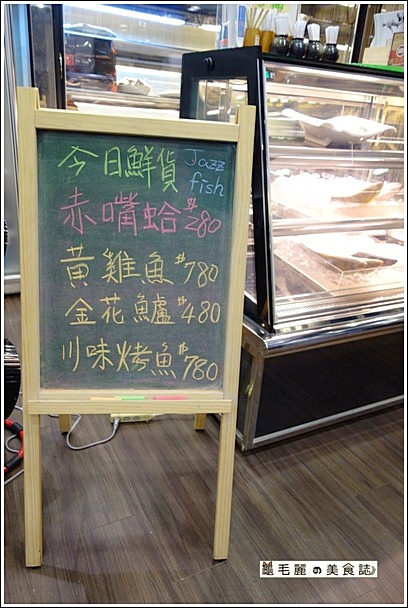 今日鮮貨 Jazz fish
赤嘴蛤 $280
黃雞魚 $780
金花鱸 $480
川味烤魚 $780
毛麗の美食誌